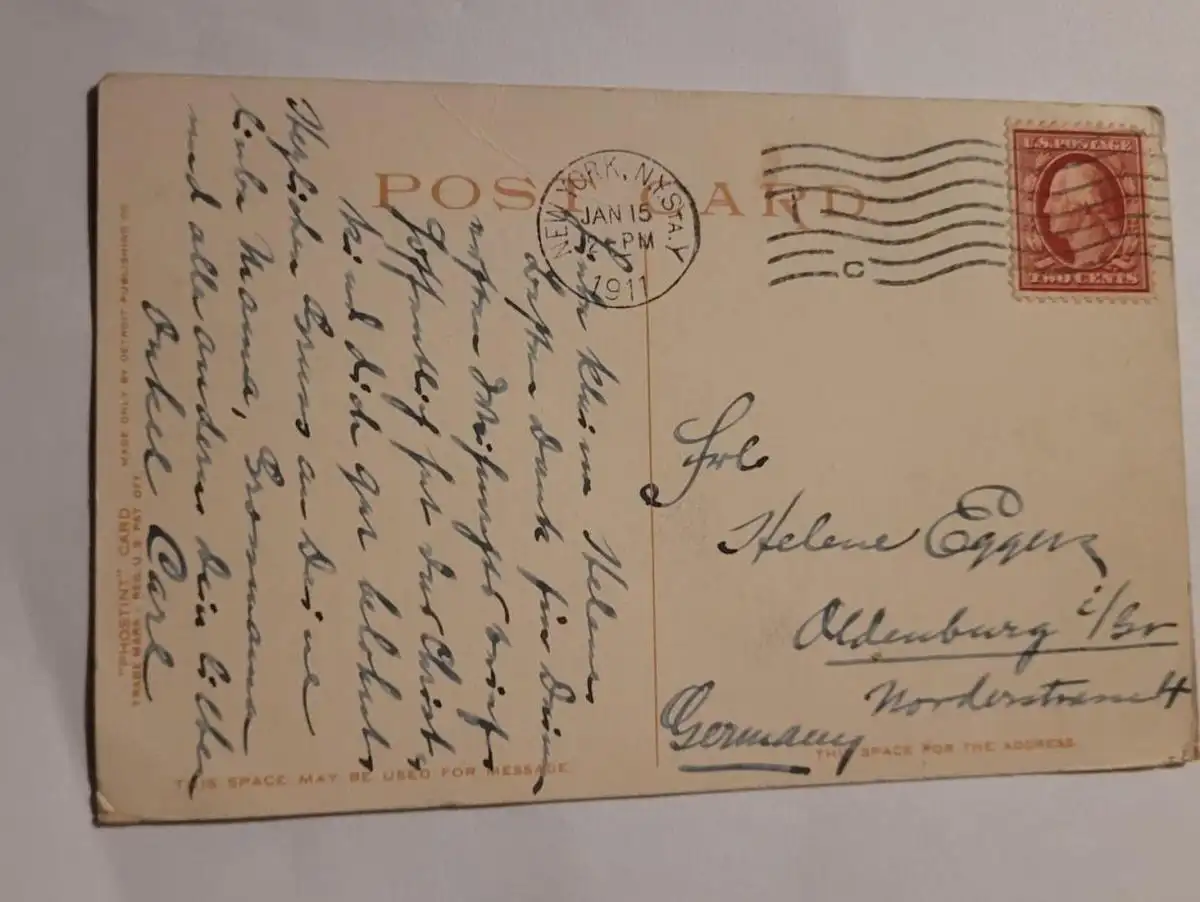 POST CARD
NEW YORK, N.Y. STA. Y
JAN 15
PM
1911
C
U.S. POSTAGE
TWO CENTS
Liebe kleine Helene,
besten Dank für Deinen
netten Weihnachtsbrief
Hoffentlich hat das Christ
kind dich gut belohnt.
Herzlichen Gruss an Deine
liebe Mama, Grossmama
und alle anderen Dein lieber
Onkel Carl
Frl
Helene Eggers
Oldenburg i/Gr
Norderstrasse 4
Germany
THIS SPACE FOR THE ADDRESS.
THIS SPACE MAY BE USED FOR MESSAGE.
"PHOSTINT" CARD
TRADE MARK REG. U.S. PAT. OFF.
MADE ONLY BY DETROIT PUBLISHING CO.